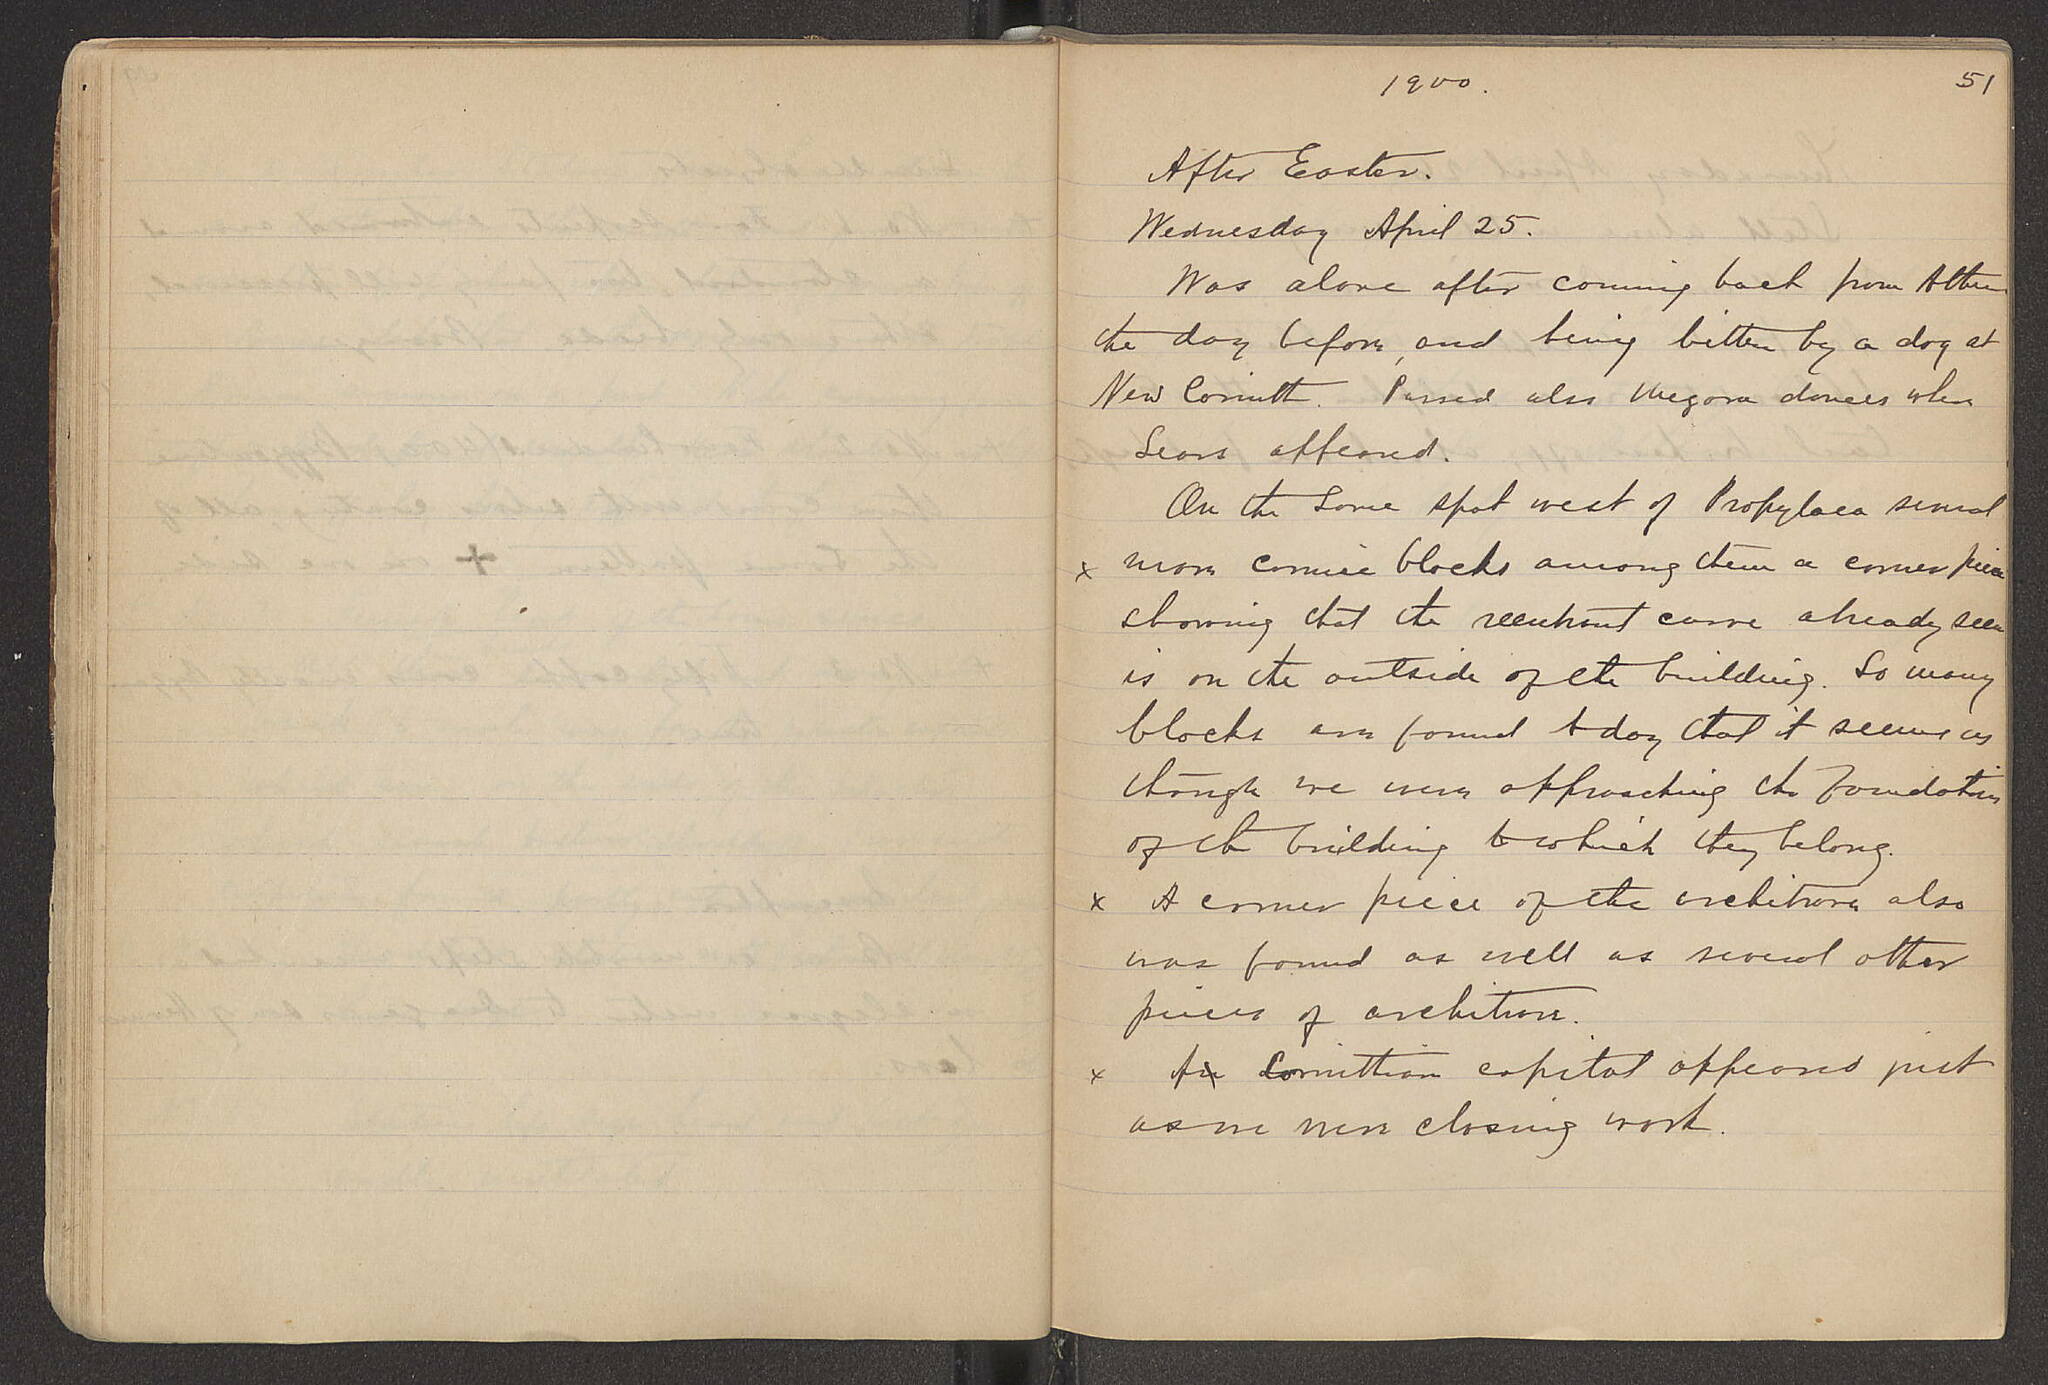 1900.
51
After Easter.
Wednesday April 25.
Was alone after coming back from Athens
the day before, and being bitten by a dog at
New Corinth. Passed also Megara dances when
Sears appeared.
On the same spot west of Propylaea several
x more cornice blocks among them a corner piece
showing that the reentrant curve already seen
is on the outside of the building. So many
blocks are found today that it seems as
though we were approaching the foundations
of the building to which they belong.
x A corner piece of the architrave also
was found as well as several other
pieces of architrave.
x A Corinthian capital appeared just
as we were closing work.